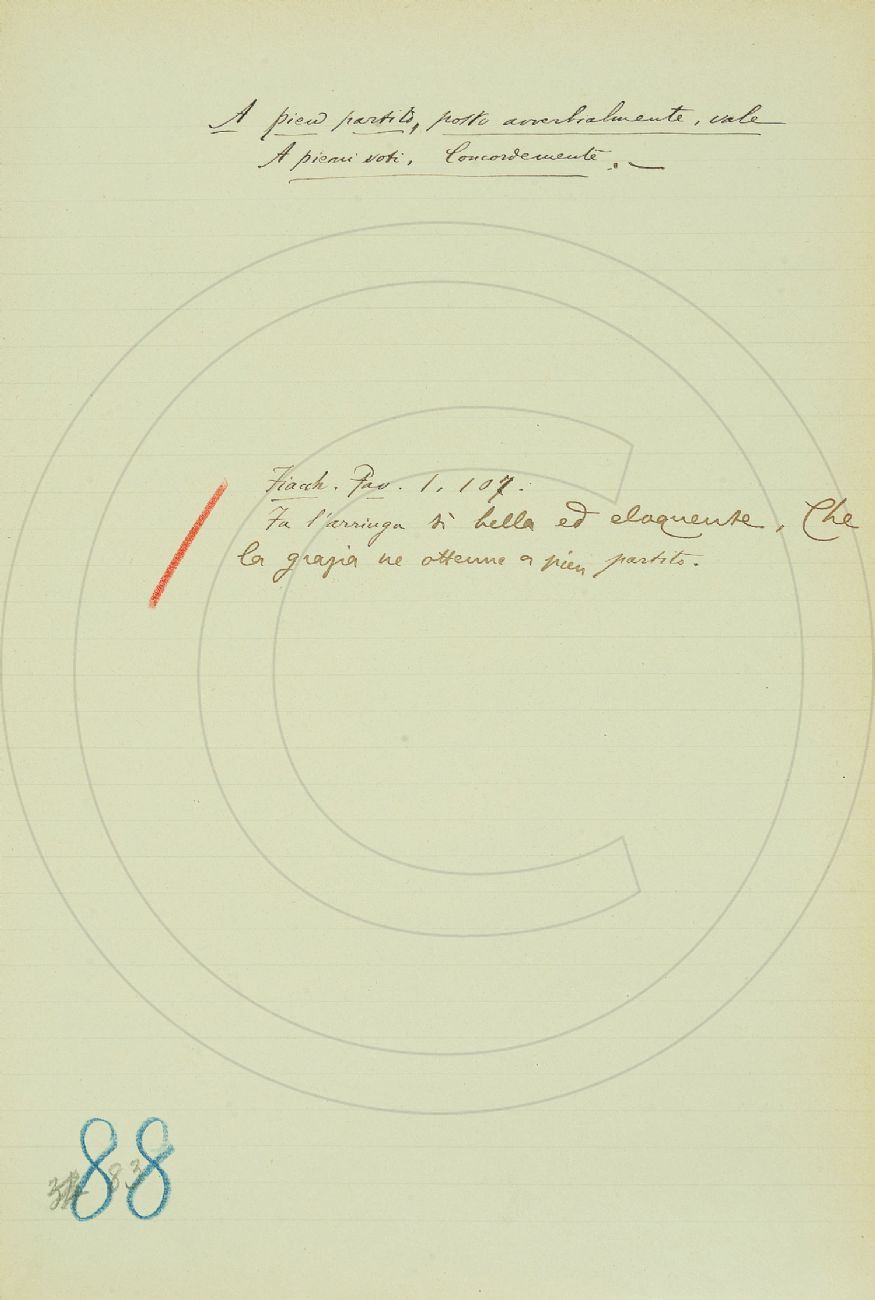 A pieno partito, posto avverbialmente, vale
A pieni voti, Concordemente. —
Fiacch. Fav. 1. 107.
Fu l'arringa sì bella ed eloquente, Che
la grazia ne ottenne a pien partito.
88